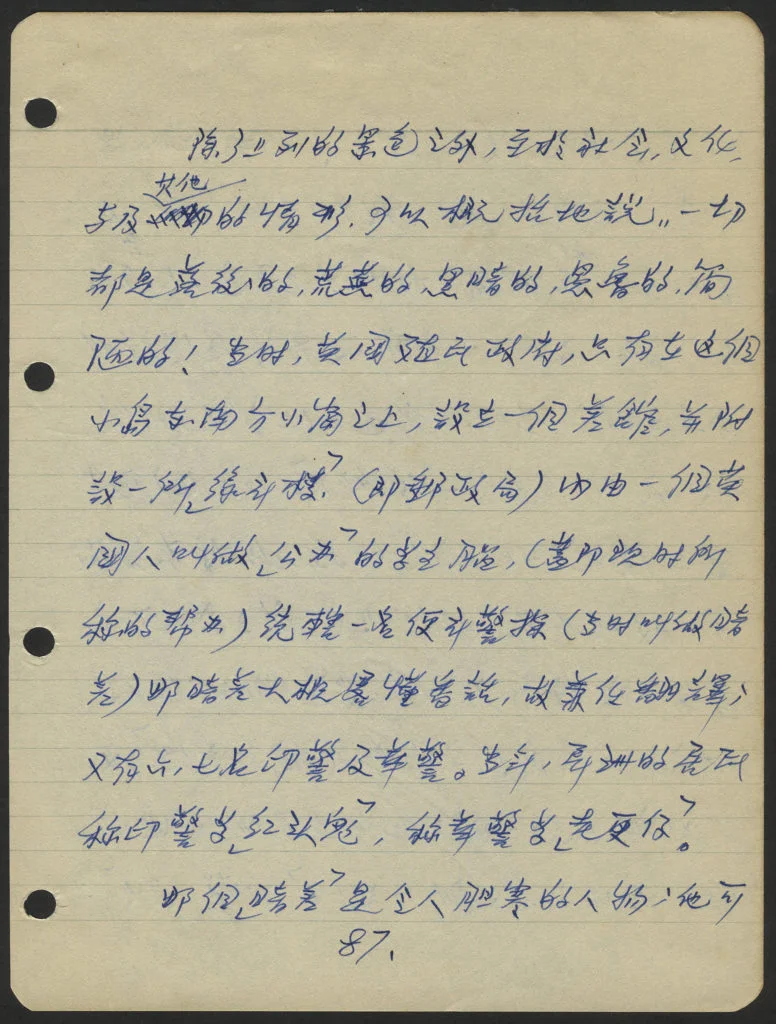 除了上列的景色之外，至於社会，文化，
其他
与及的情形，可以概括地説，一切
都是落後的，荒蕪的，黑暗的，愚魯的，简
陋的！当时，英国殖民政府，只有在这個
小島东南方小崗之上，設立一個差舘，并附
設一所「綠衣楼」（即郵政局）内由一個英
國人叫做「公办」的当主腦，（盖即现时所
称的帮办）统轄一名便衣警探（当时叫做暗
差）那暗差大概畧懂番話，故兼任翻譯；
又有六，七名印警及華警。当年，長洲的居民
称印警为「红头鬼」，称華警为「老更仔」。
那個「暗差」是令人胆寒的人物；他可
87.